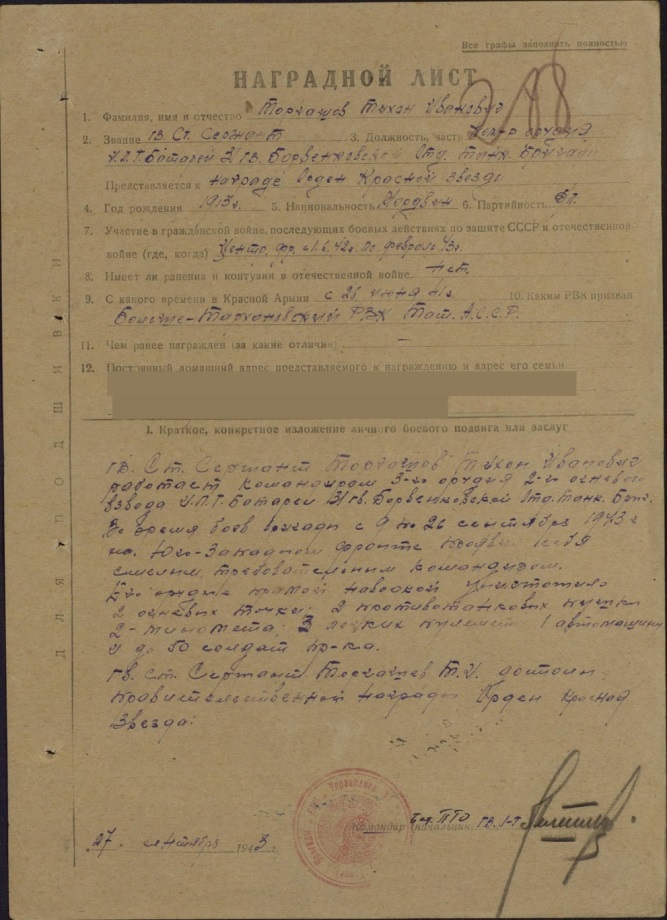 Все графы заполнять полностью
НАГРАДНОЙ ЛИСТ
1. Фамилия, имя и отчество Торгашов Тихон Иванович
2. Звание гв. Ст. Сержант 3. Должность, часть орудия
И.П.Т. Батареи 31 гв. Барвенковской Отд. танк. Бригады
Представляется к награде Орден Красной Звезды
4. Год рождения 1913 г. 5. Национальность Мордвин 6. Партийность
7. Участие в гражданской войне, последующих боевых действиях по защите СССР и отечественной
войне (где, когда) Центр. фр. с 1.6.42г. по февраль 43г.
8. Имеет ли ранения и контузии в отечественной войне Нет.
9. С какого времени в Красной Армии с 26 июня 41г. 10. Каким РВК призван
Больше-Тарханский РВК Тат. А.С.С.Р.
11. Чем ранее награжден (за какие отличия) —
12. Постоянный домашний адрес представляемого к награждению и адрес его семьи
I. Краткое, конкретное изложение личного боевого подвига или заслуг
гв. Ст. Сержант Торгашов Тихон Иванович
работает командиром 3-го орудия 2-го огневого
взвода И.П.Т. Батареи 31 гв. Барвенковской Отд. танк. Бриг.
Во время боев бригады с 9 по 26 сентября 1943 г
на Юго-Западном фронте проявил себя
смелым, требовательным командиром.
Его орудие прямой наводкой уничтожило
2 огневых точки; 2 противотанковых пушки
2-миномета; 3 легких пулемета 1 автомашину
и до 50 солдат пр-ка.
гв. ст. Сержант Торгашов Т.И. достоин
правительственной награды Орден Красной
Звезда.
ПТО гв. л-т
Командир (начальник)
27 сентября 1943.
288
ДЛЯ ПОДШИВКИ